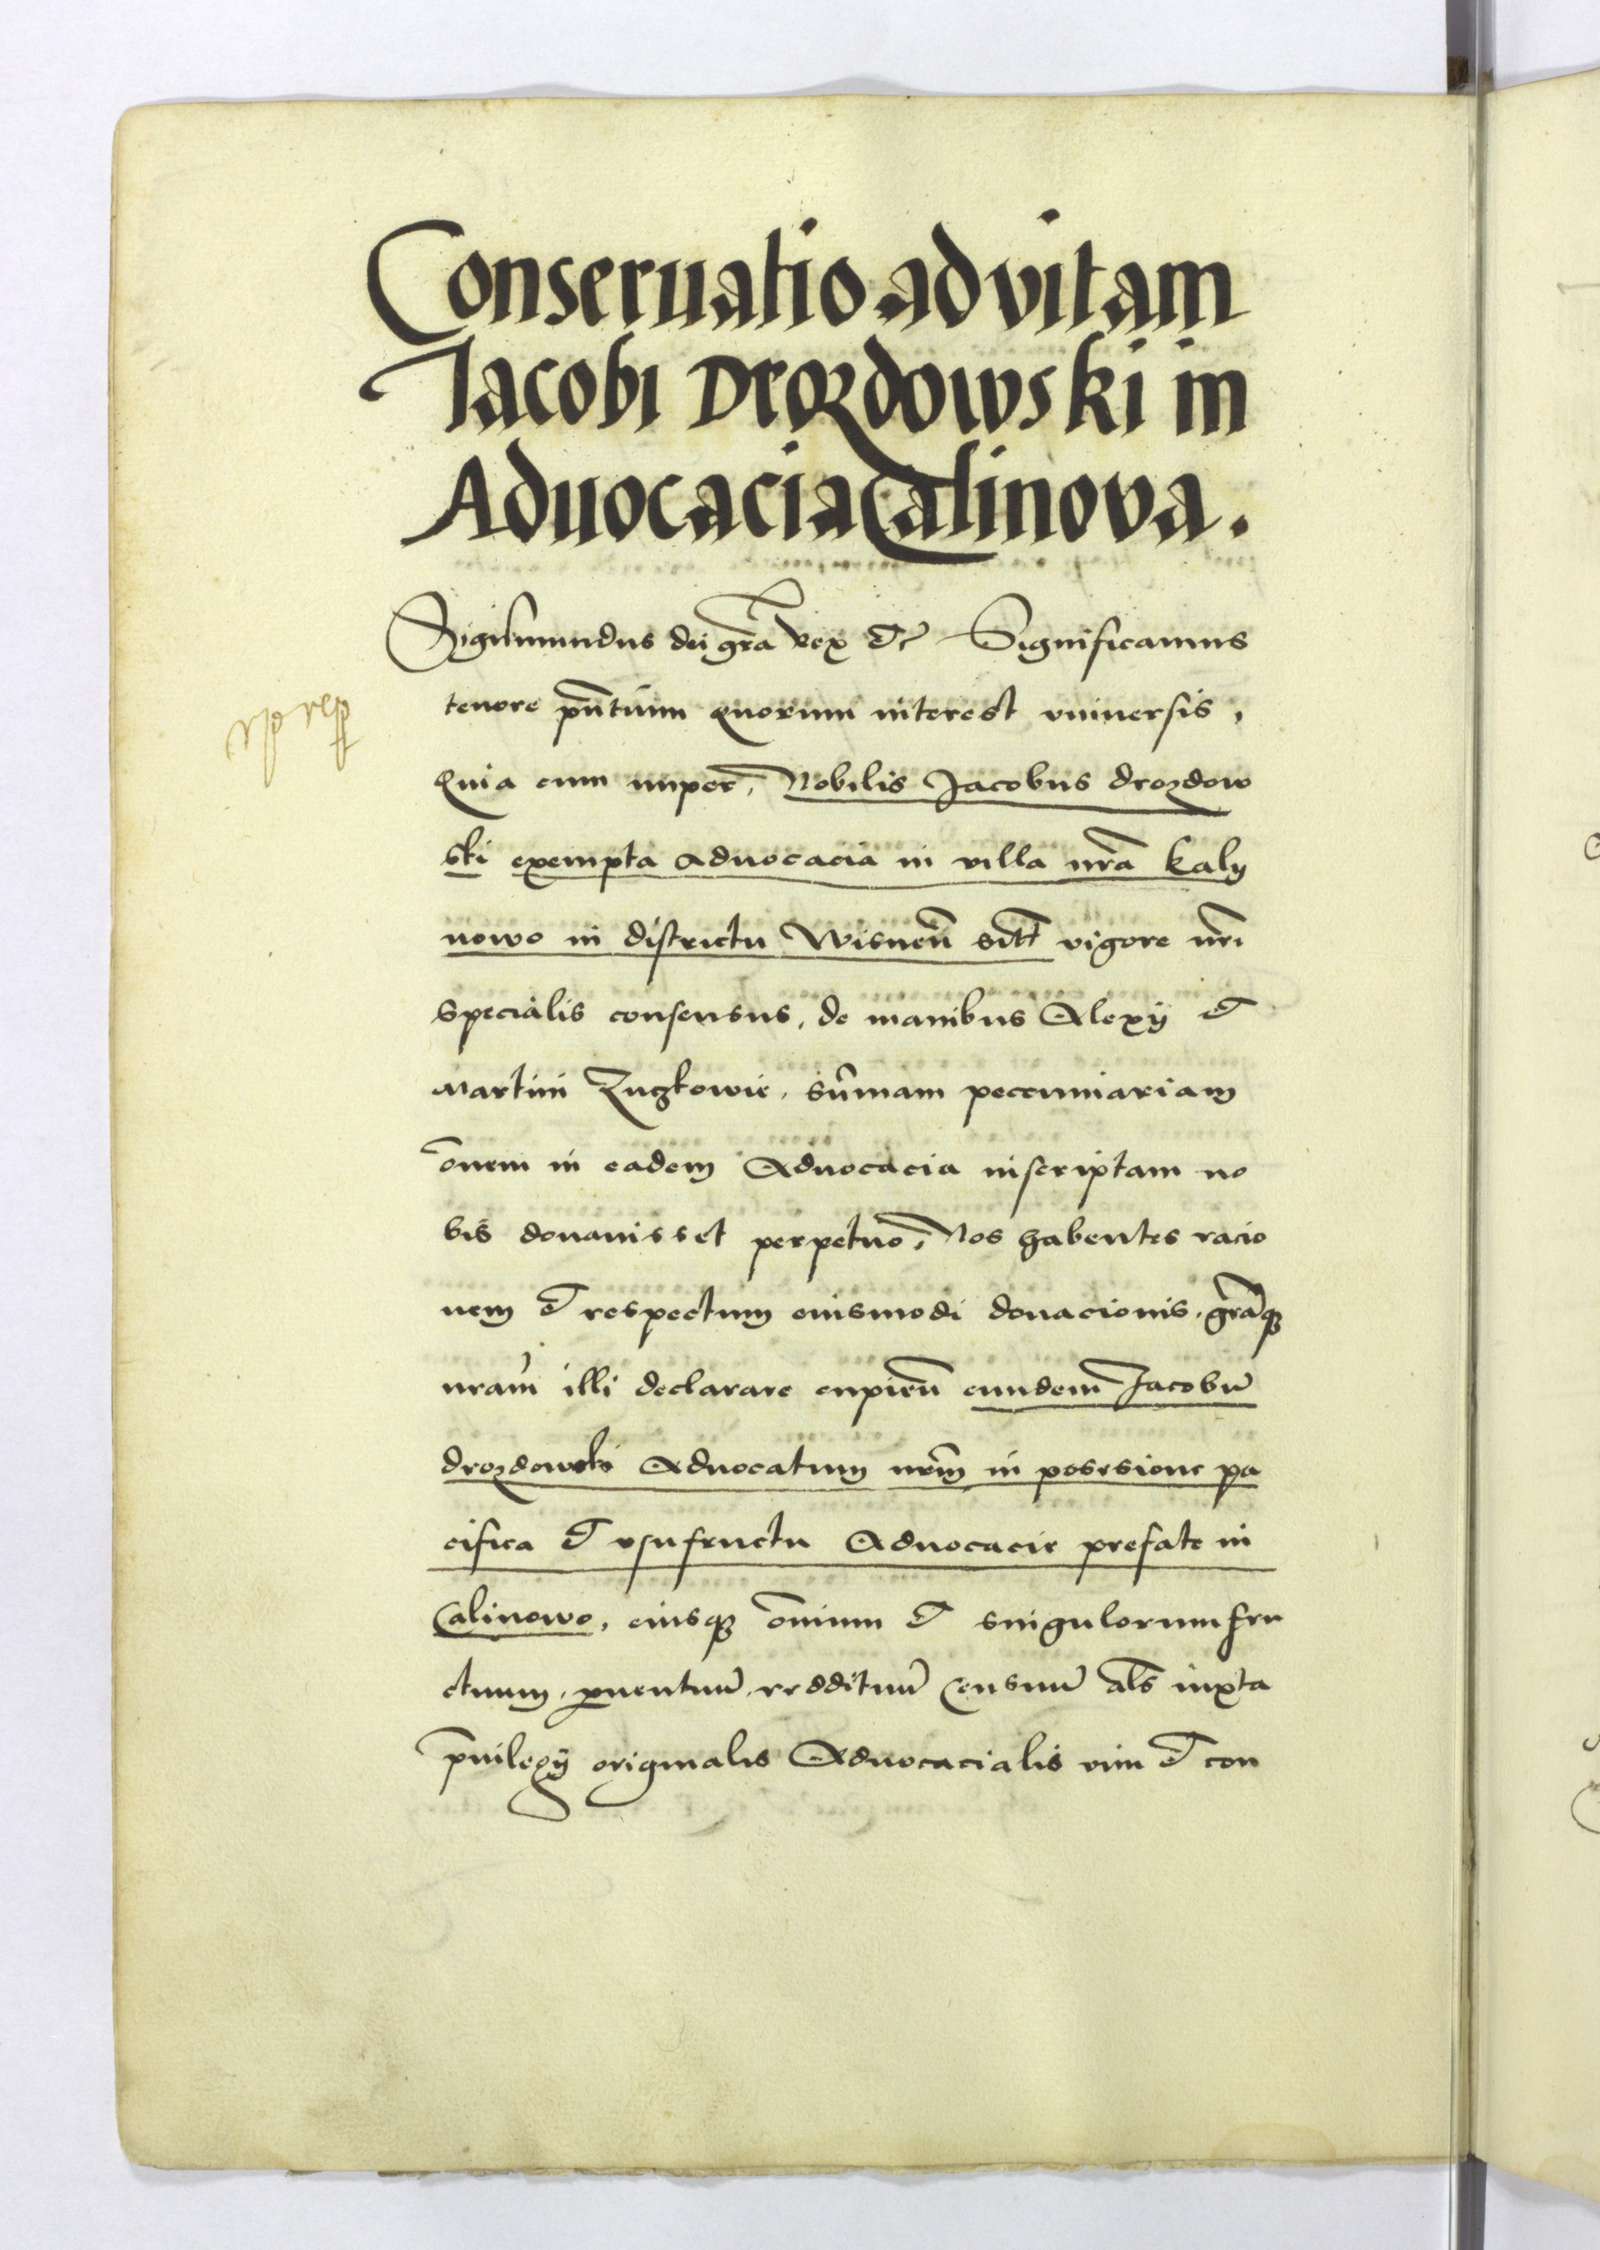 Conseruatio ad vitam
Jacobi Drozdowski in
Aduocacia Calinova.
Sigismundus dei gra̅ Rex &c Significamus
tenore pn̅tium quorum interest vniuersis,
Quia cum nuper, Nobilis Jacobus drozdow
ski exempta aduocacia in villa nr̅a kaly
nowo in districtu Wisnen̅ sitt̅ vigore nr̅i
specialis consensus, de manibus Alexij et
Martini, su̅mam peccuniariam
o̅nem in eadem Aduocacia inscriptam no
bis donauisset perpetuo, Nos habentes racio
nem et respectum euismodi donacionis, gra̅q3
nram̅ illi declarare cupien̅ eundem Jacobu̅
drozdowski Aduocatum nr̅m in possesione pa
cifica et vsufructu Aduocacie prefate in
Calinowo, eiusq3 o̅nium et singulorum fru
ctuum, ꝓuentuu̅, reddituu̅ Censuu̅ als̅ iuxta
pr̅uilegij originalis Aduocacialis vim et con